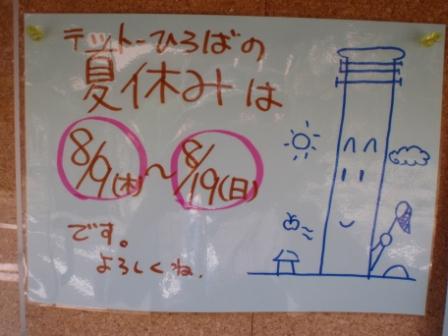 テットーひろばの
夏休みは
8/9(木)～8/19(日)
です。
よろしくね.